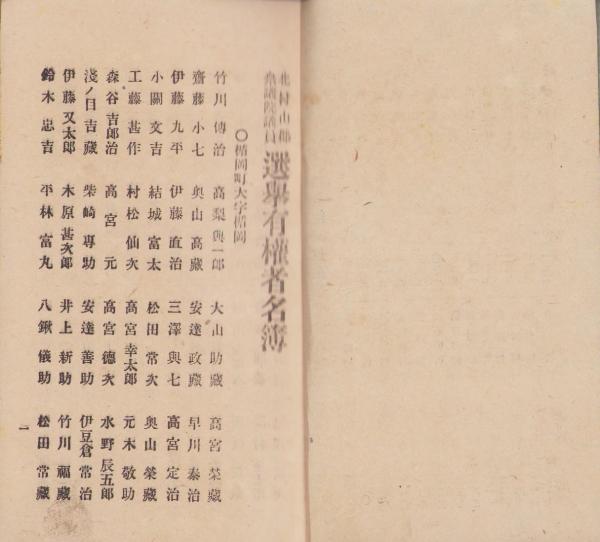 北村山郡
衆議院議員
選擧有權者名簿
〇楯岡町大字楯岡
竹川傳治 高梨與一郎 大山助藏 高宮榮藏
齋藤小七 奥山高藏 安達政藏 早川泰治
伊藤九平 伊藤直治 三澤與七 高宮定治
小關文吉 結城富太 松田常次 奥山榮藏
工藤甚作 村松仙次 高宮幸太郎 元木敬助
森谷吉郎治 高宮元 高宮德次 水野辰五郎
淺ノ目吉藏 柴崎專助 安達善助 伊豆倉常治
伊藤又太郎 木原甚次郎 井上新助 竹川福藏
鈴木忠吉 平林富丸 八鍬儀助 松田常藏